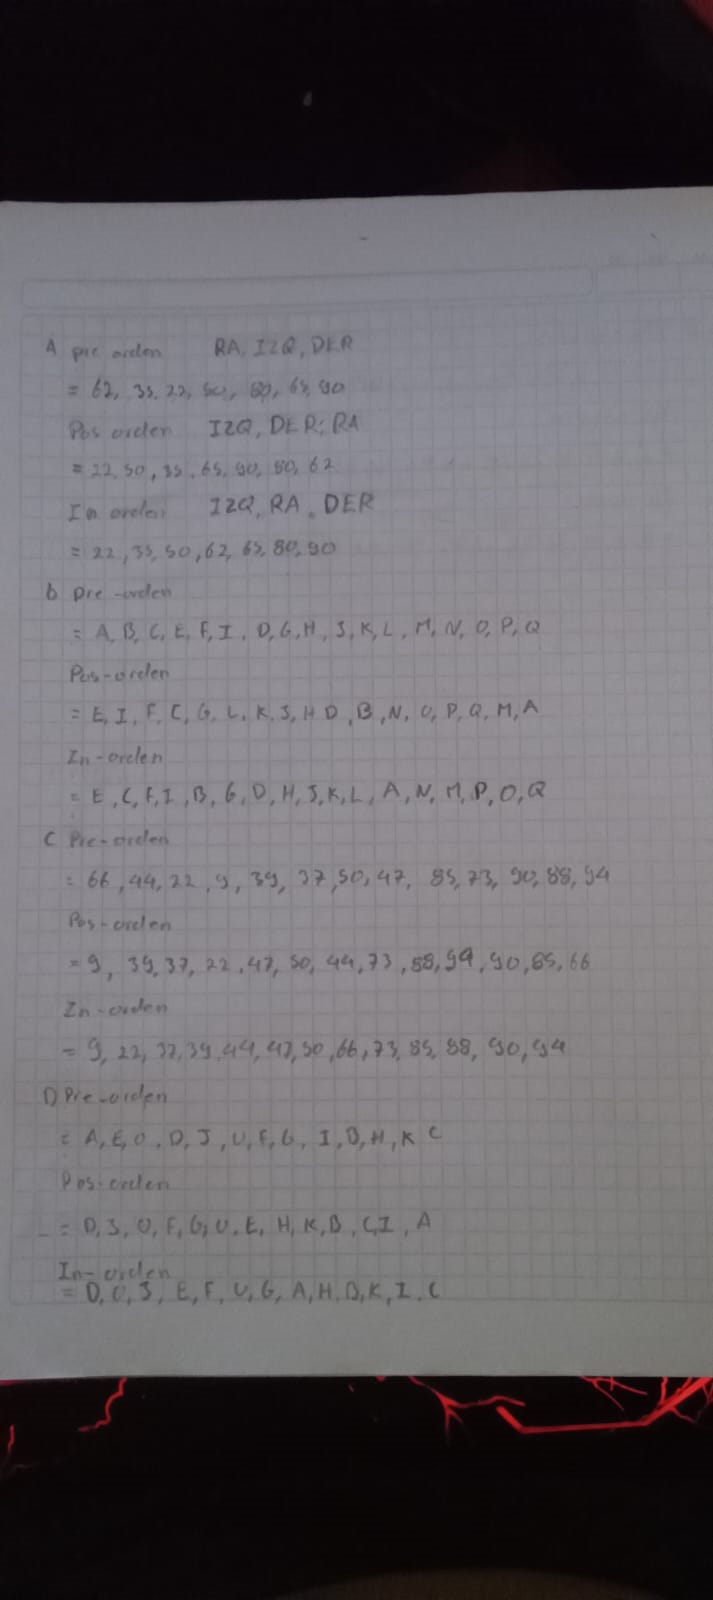 A pre orden RA, IZQ, DER
= 62, 35, 22, 50, 80, 65, 90
Pos orden IZQ, DER, RA
= 22, 50, 35, 65, 90, 80, 62
In orden IZQ, RA, DER
= 22, 35, 50, 62, 65, 80, 90
b pre-orden
= A, B, C, E, F, I, D, G, H, J, K, L, M, N, O, P, Q
Pos-orden
= E, I, F, C, G, L, K, J, H D, B, N, O, P, Q, M, A
In-orden
= E, C, F, I, B, G, D, H, J, K, L, A, N, M, P, O, Q
C Pre-orden
= 66, 44, 22, 9, 39, 37, 50, 47, 85, 73, 90, 88, 94
Pos-orden
= 9, 39, 37, 22, 47, 50, 44, 73, 88, 94, 90, 85, 66
In-orden
= 9, 22, 37, 39, 44, 47, 50, 66, 73, 85, 88, 90, 94
D) Pre-orden
= A, E, O, D, J, U, F, G, I, B, H, K C
Pos-orden
= D, J, O, F, G, U, E, H, K, B, C, I, A
In-orden
= D, O, J, E, F, U, G, A, H, B, K, I, C